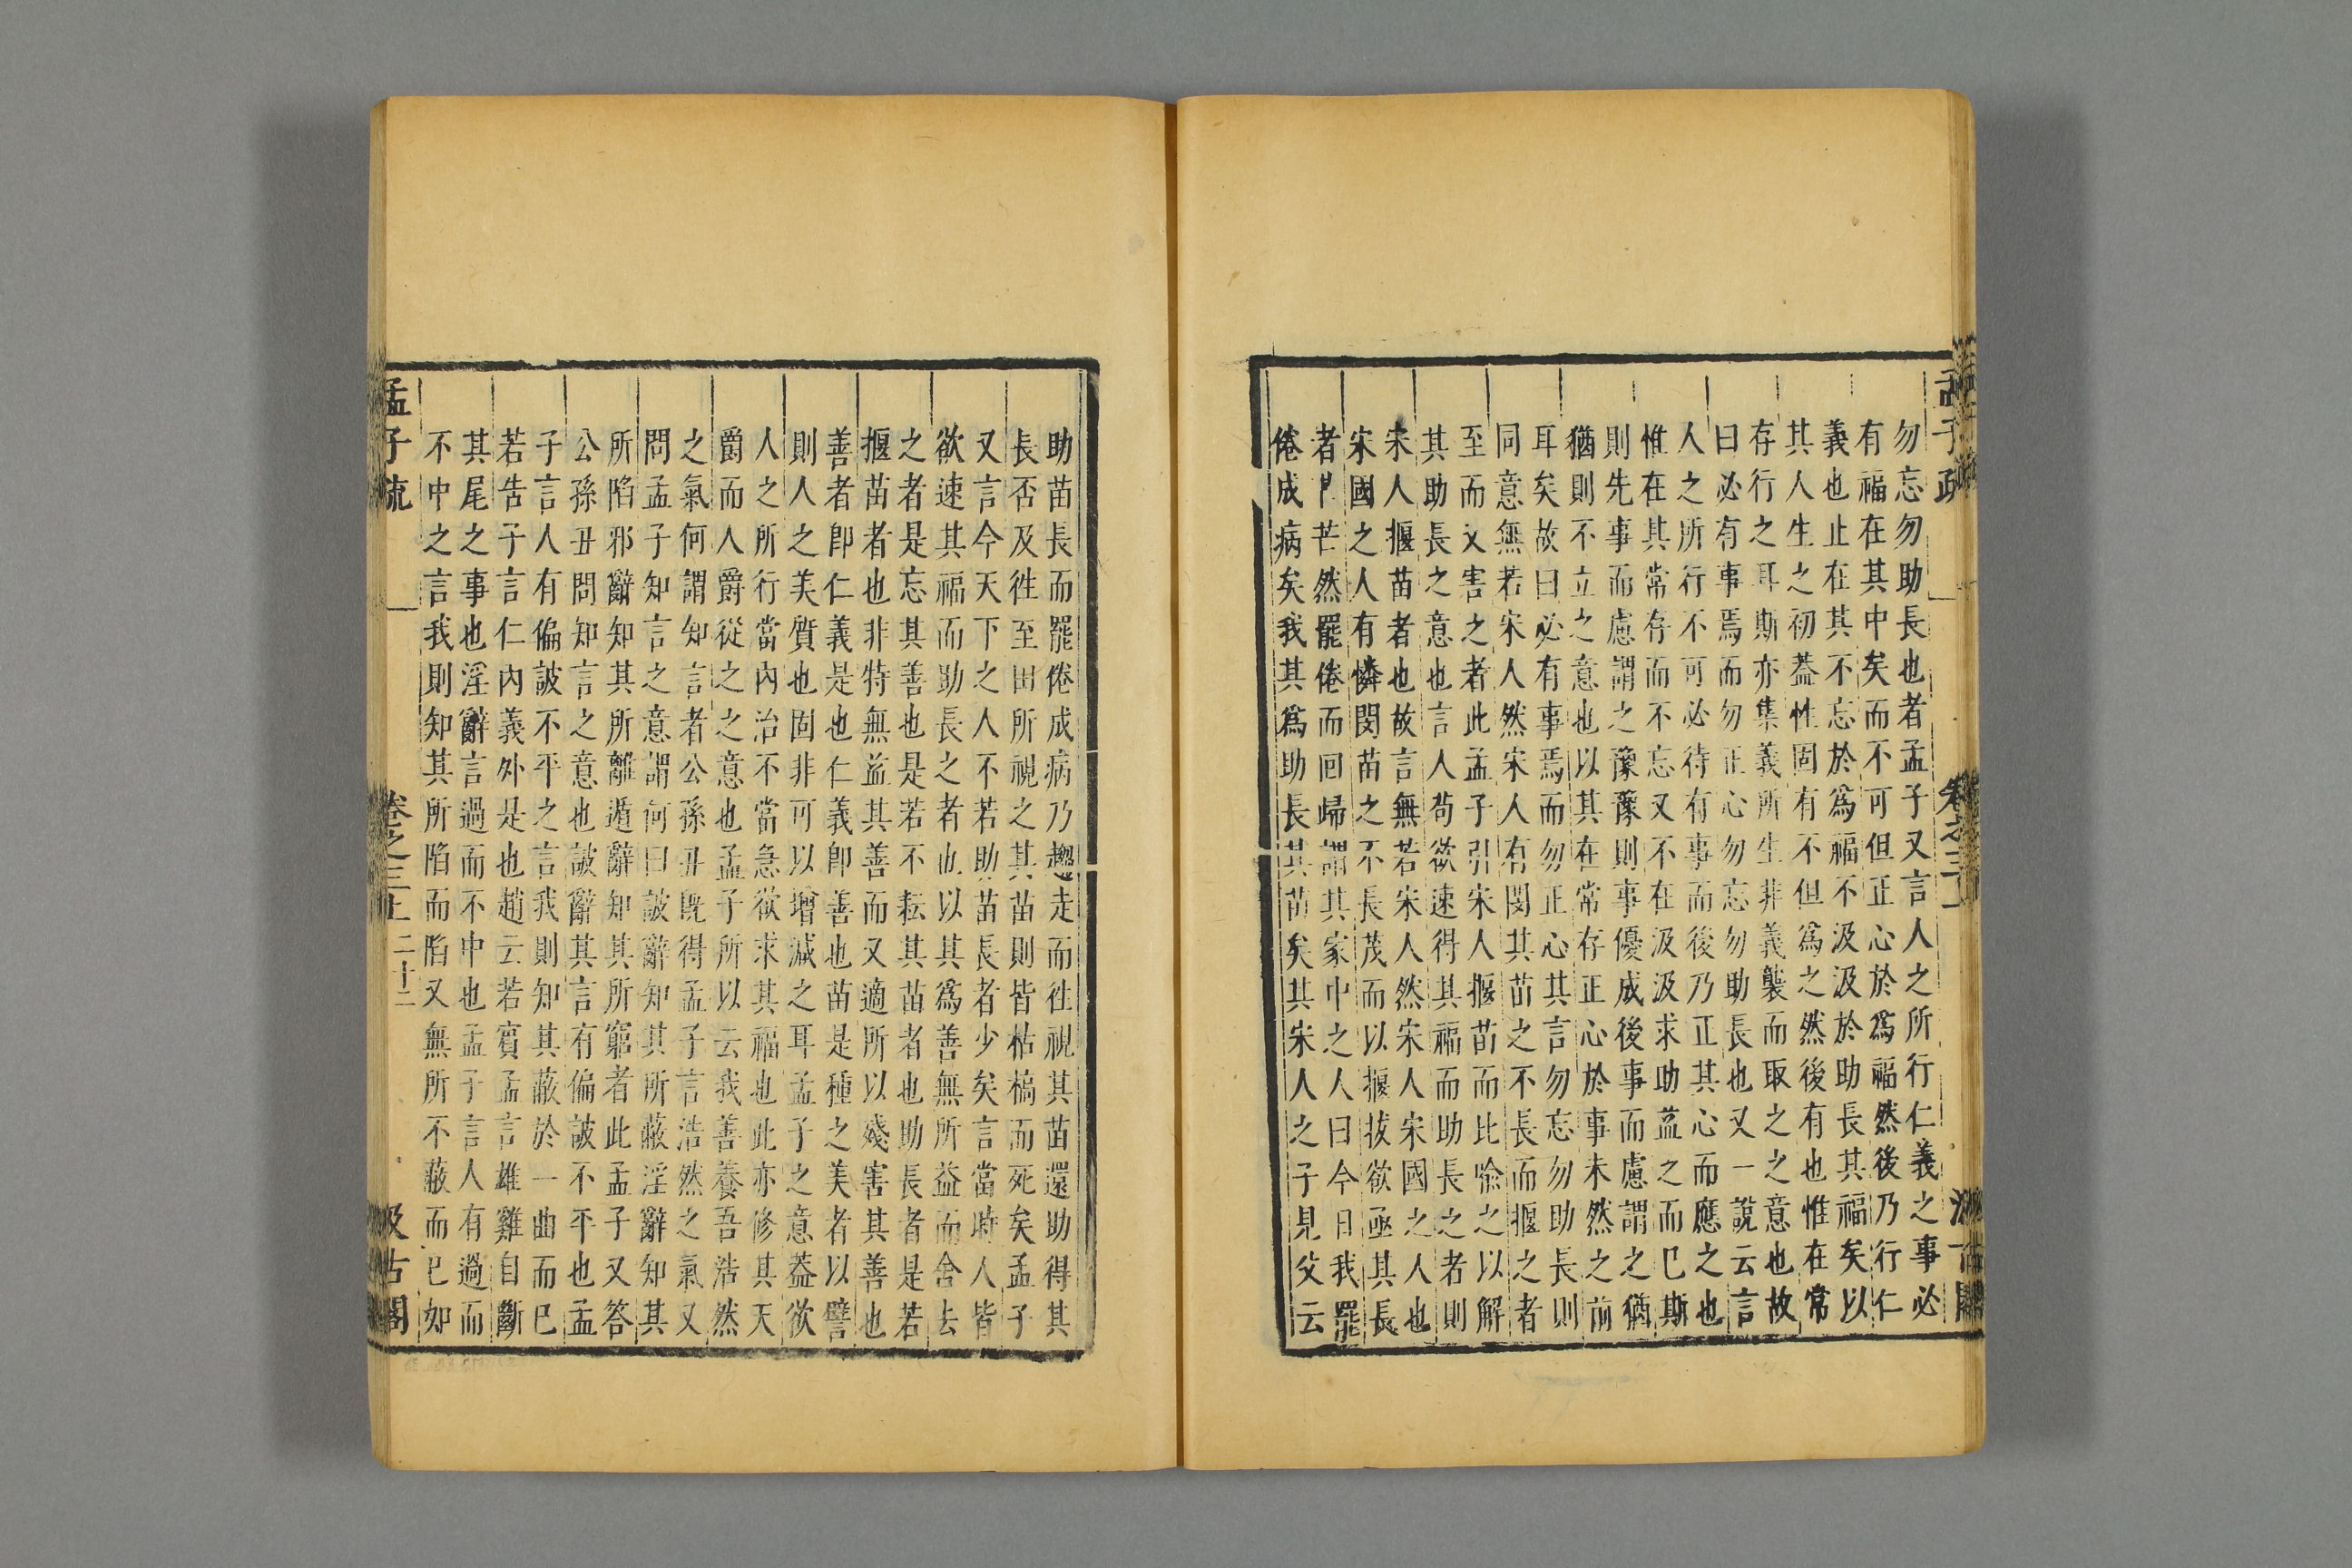 孟子疏
卷之三上
汲古閣
勿忘勿助長也者孟子又言人之所行仁義之事必
有福在其中矣而不可但正心於爲福然後乃行仁
義也止在其不忘於爲福不汲汲於助長其福矣以
其人生之初葢性固有不但爲之然後有也惟在常
存行之耳斯亦集義所生非義襲而取之之意也故
曰必有事焉而勿正心勿忘勿助長也又一說云言
人之所行不可必待有事而後乃正其心而應之也
惟在其常存而不忘又不在汲汲求助益之而已斯
則先事而慮謂之豫豫則事優成後事而慮謂之猶
猶則不立之意也以其在常存正心於事未然之前
耳矣故曰必有事焉而勿正心其言勿忘勿助長則
同意無若宋人然宋人有閔其苗之不長而揠之者
至而又害之者此孟子引宋人揠苗而比喻之以解
其助長之意也言人苟欲速得其福而助長之者則
宋人揠苗者也故言無若宋人然宋人宋國之人也
宋國之人有憐閔苗之不長茂而以揠拔欲亟其長
者芒然罷倦而回歸謂其家中之人曰今日我罷
倦成病矣我其爲助長其苗矣其宋人之子見父云
助苗長而罷倦成病乃趨走而徃視其苗還助得其
長否及徃至田所視之其苗則皆枯槁而死矣孟子
又言今天下之人不若助苗長者少矣言當時人皆
欲速其福而助長之者也以其爲善無所益而舍去
之者是忘其善也是若不耘其苗者也助長者是若
揠苗者也非特無益其善而又適所以殘害其善也
善者卽仁義是也仁義卽善也苗是種之美者以譬
則人之美質也固非可以增減之耳孟子之意葢欲
人之所行當內治不當急欲求其福也此亦修其天
爵而人爵從之之意也孟子所以云我善養吾浩然
之氣何謂知言者公孫丑旣得孟子言浩然之氣又
問孟子知言之意謂何曰詖辭知其所蔽淫辭知其
所陷邪辭知其所離遁辭知其所窮者此孟子又答
公孫丑問知言之意也詖辭其言有偏詖不平也孟
子言人有偏詖不平之言我則知其蔽於一曲而已
若告子言仁內義外是也趙云若賓孟言雄雞自斷
其尾之事也淫辭言過而不中也孟子言人有過而
不中之言我則知其所陷而陷又無所不蔽而已如
孟子疏
卷之三上
二十二
汲古閣